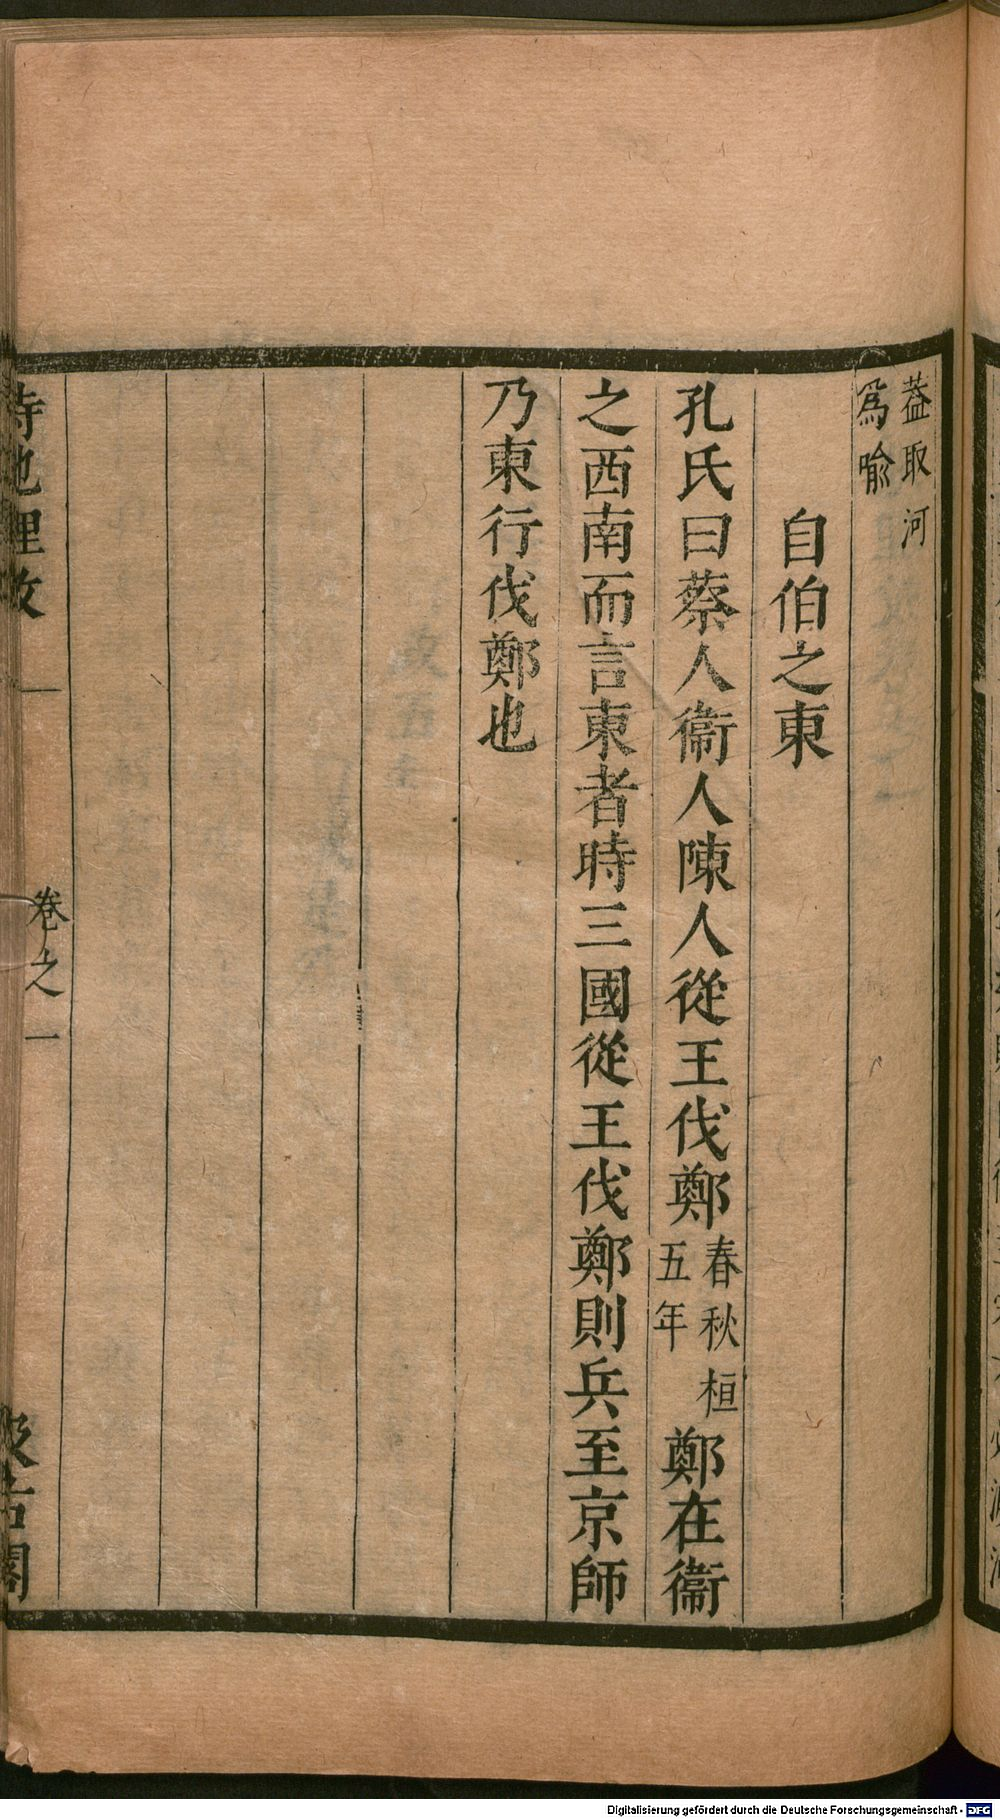 葢取河
爲喩
自伯之東
孔氏曰蔡人衞人陳人從王伐鄭
春秋桓
五年
鄭在衞
之西南而言東者時三國從王伐鄭則兵至京師
乃東行伐鄭也
詩地理攷
卷之一
汲古閣
Digitalisierung gefördert durch die Deutsche Forschungsgemeinschaft - DFG